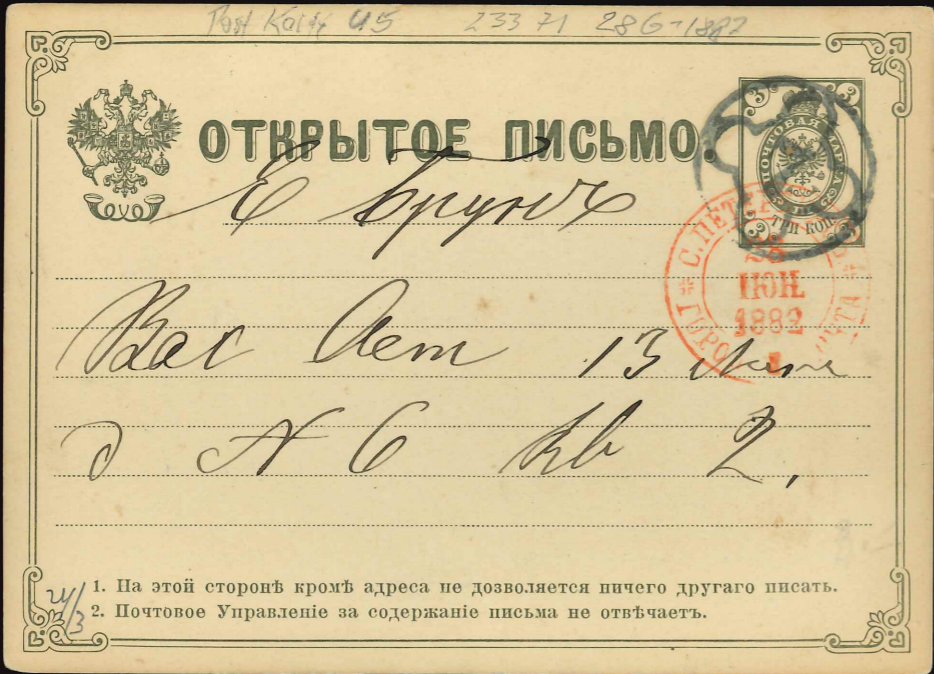 Post Karte 45 233 71 28 6-1882
ОТКРЫТОЕ ПИСЬМО.
3 3
ПОЧТОВАЯ МАРКА
ТРИ КОП.
3 3
С.ПЕТЕРБУРГ
ГОРОД. ПОЧТА
ІЮН.
1882
1
Е
Вас Аст 13
д N 6 кв 2,
1. На этой сторонѣ кромѣ адреса не дозволяется ничего другаго писать.
2. Почтовое Управленіе за содержаніе письма не отвѣчаетъ.
24/3